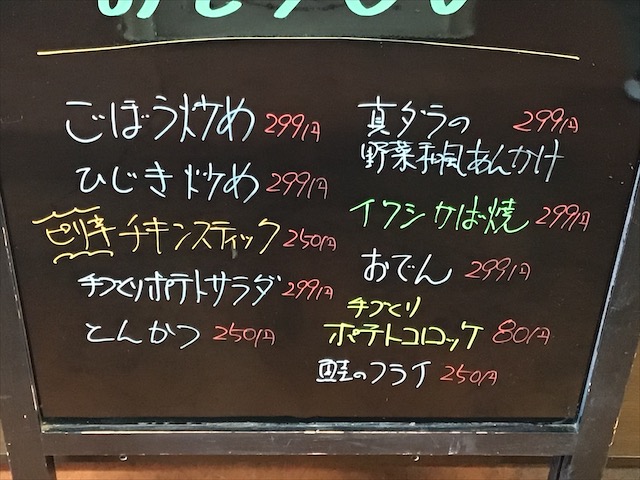 ごぼう炒め 299円
ひじき炒め 299円
ピリ辛チキンスティック 250円
手づくりポテトサラダ 299円
とんかつ 250円
真ダラの 299円
野菜和風あんかけ
イワシかば焼 299円
おでん 299円
手づくり
ポテトコロッケ 80円
鮭のフライ 250円